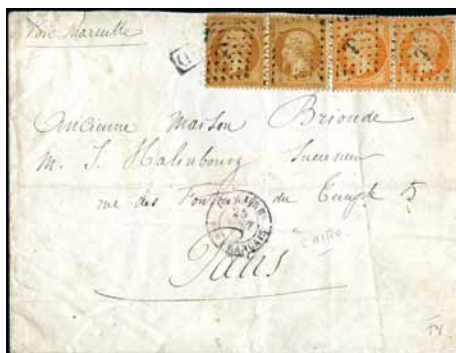 Voie Marseille
Ancienne Maison Brionde
M. J. Halenbourg Successeur
rue des Font du Temple 5
Paris
CAIRO